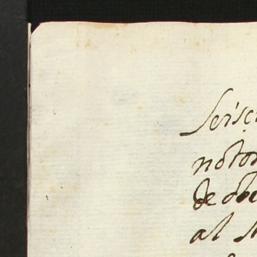 Seisc
notor
de obe
al S